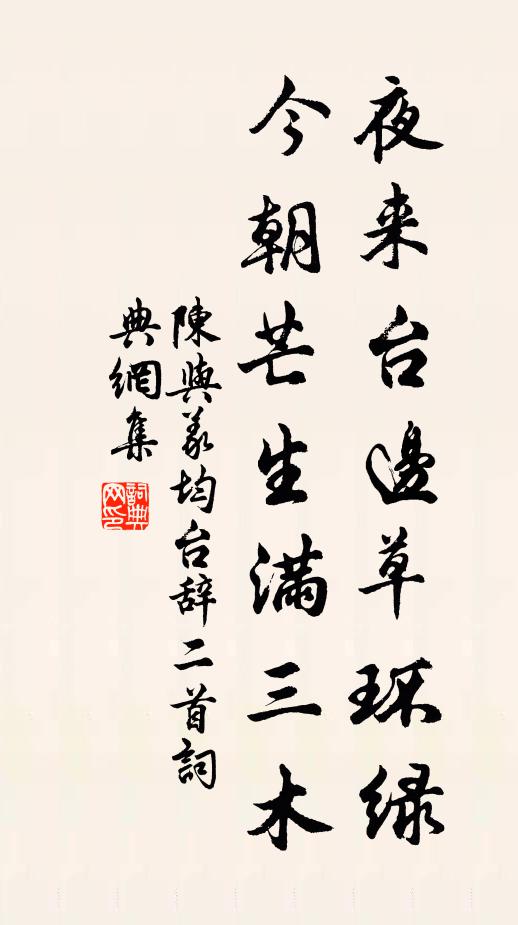 夜来台邊草环绿
今朝芒生满三木
陳與義均台辞二首詞
典網集
詞典
网印